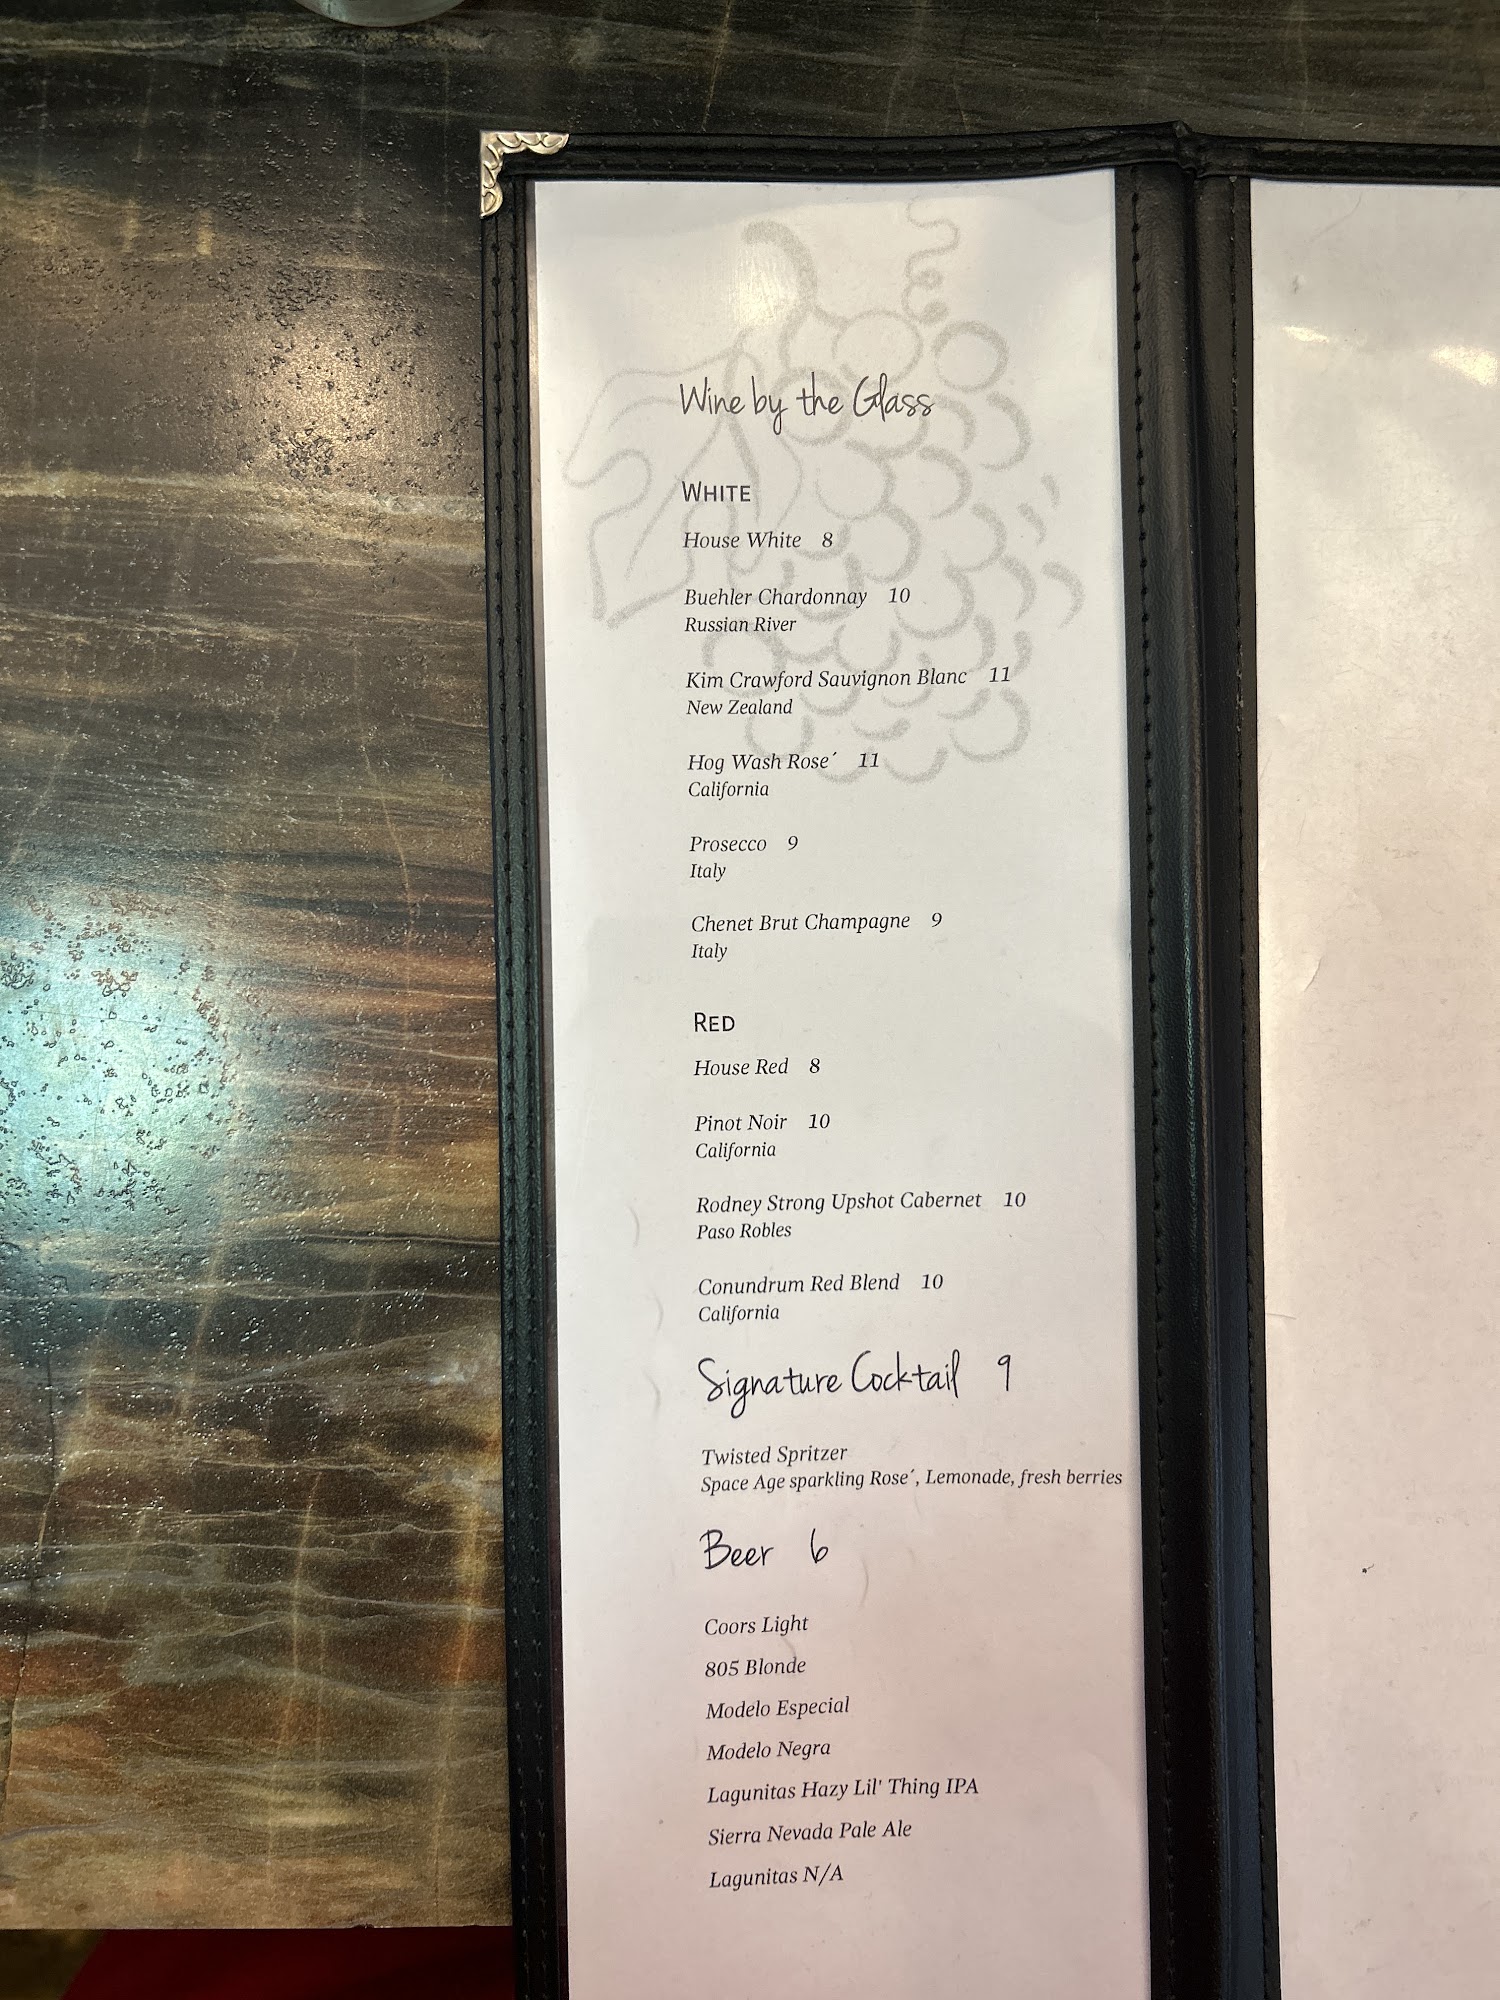 Wine by the Glass
WHITE
House White 8
Buehler Chardonnay 10
Russian River
Kim Crawford Sauvignon Blanc 11
New Zealand
Hog Wash Rose´ 11
California
Prosecco 9
Italy
Chenet Brut Champagne 9
Italy
RED
House Red 8
Pinot Noir 10
California
Rodney Strong Upshot Cabernet 10
Paso Robles
Conundrum Red Blend 10
California
Signature Cocktail 9
Twisted Spritzer
Space Age sparkling Rose´, Lemonade, fresh berries
Beer 6
Coors Light
805 Blonde
Modelo Especial
Modelo Negra
Lagunitas Hazy Lil' Thing IPA
Sierra Nevada Pale Ale
Lagunitas N/A